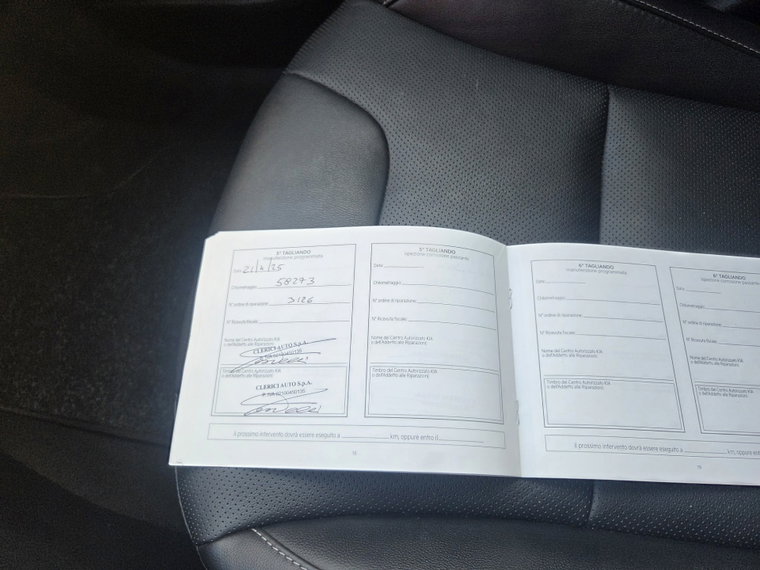 5° TAGLIANDO
manutenzione programmata
Data
Chilometraggio 58273
N° ordine di riparazione 3126
N° Ricevuta Fiscale
Nome del Centro Autorizzato KIA
o dell'Addetto alle Riparazioni
CLERICI AUTO S.p.A.
Timbro del Centro Autorizzato KIA
CLERICI AUTO S.p.A.
5° TAGLIANDO
ispezione corrosione passante
Data
Chilometraggio
N° ordine di riparazione
N° Ricevuta Fiscale
Nome del Centro Autorizzato KIA
o dell'Addetto alle Riparazioni
Timbro del Centro Autorizzato KIA
o dell'Addetto alle Riparazioni
Il prossimo intervento dovrà essere eseguito a km, oppure entro il
6° TAGLIANDO
manutenzione programmata
Data
Chilometraggio
N° ordine di riparazione
N° Ricevuta Fiscale
Nome del Centro Autorizzato KIA
o dell'Addetto alle Riparazioni
Timbro del Centro Autorizzato KIA
o dell'Addetto alle Riparazioni
6° TAGLIANDO
ispezione corrosione
Data
Chilometraggio
N° ordine di riparazione
N° Ricevuta Fiscale
Nome del Centro Autorizzato KIA
o dell'Addetto alle Riparazioni
Timbro del Centro Autorizzato
o dell'Addetto alle Riparazioni
Il prossimo intervento dovrà essere eseguito a km, oppure entro